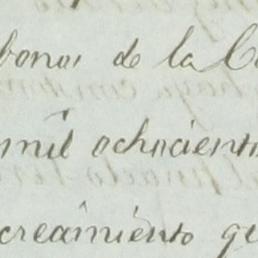 bonos de la C
mil ochocient
creamiento ge